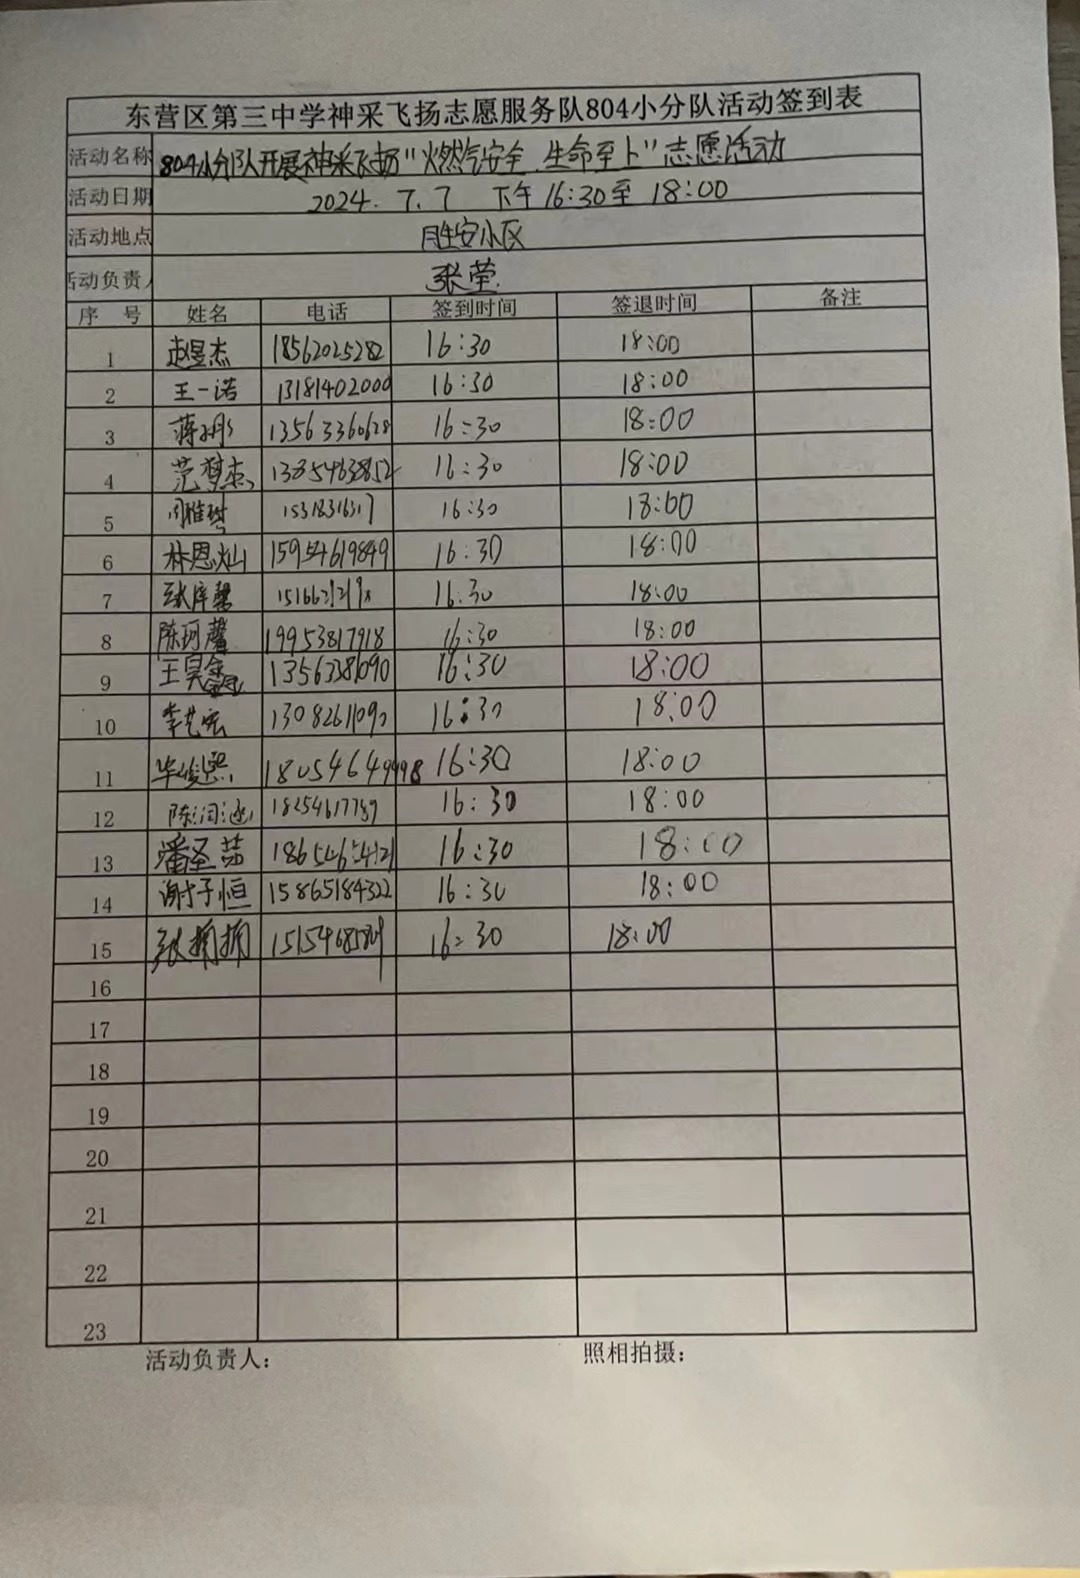 东营区第三中学神采飞扬志愿服务队804小分队活动签到表
活动名称 804小分队开展神采飞扬"燃气安全.生命至上"志愿活动
活动日期 2024.7.7 下午16:30至18:00
活动地点 胜安小区
活动负责人 张荣
序号 姓名 电话 签到时间 签退时间 备注
1 赵昱杰 18562025282 16:30 18:00
2 王一诺 13181402000 16:30 18:00
3 13563360628 16:30 18:00
4 范梦杰 13854638524 16:30 18:00
5 16:30 18:00
6 林恩灿 15954619849 16:30 18:00
7 16:30 18:00
8 陈珂馨 19953817918 16:30 18:00
9 16:30 18:00
10 李艺宏 16:30 18:00
11 18054649998 16:30 18:00
12 18254617789 16:30 18:00
13 16:30 18:00
14 谢子恒 15865184322 16:30 18:00
15 16:30 18:00
16
17
18
19
20
21
22
23
活动负责人: 照相拍摄: